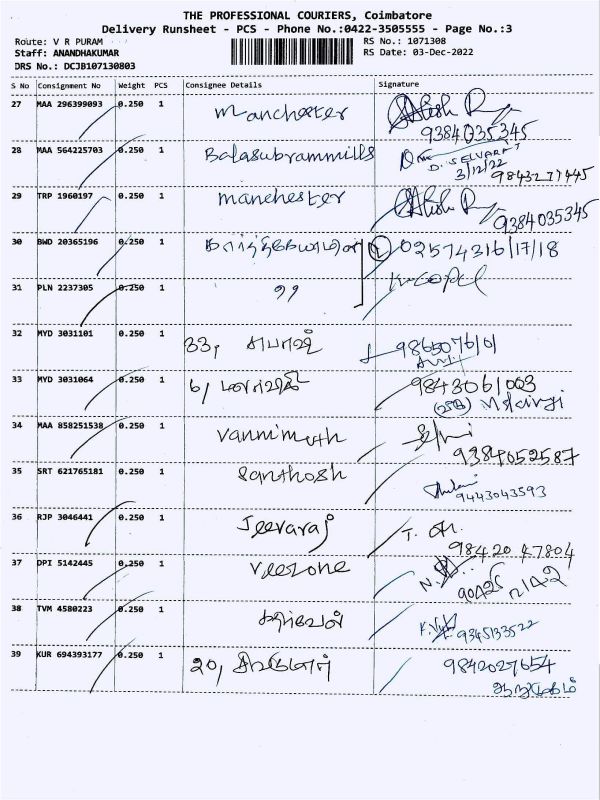 THE PROFESSIONAL COURIERS, Coimbatore
Delivery Runsheet - PCS - Phone No.:0422-3505555 - Page No.:3
Route: V R PURAM
RS No.: 1071308
Staff: ANANDHAKUMAR
RS Date: 03-Dec-2022
DRS No.: DCJB107130803
S No Consignment No Weight PCS Consignee Details Signature
27 MAA 296399093 0.250 1 Manchester
9384035345
28 MAA 564225703 0.250 1 Balasubrammills
D. SELVARAJ
3/12/22
9843277445
29 TRP 1960197 0.250 1 Manchester
9384035345
30 BWD 20365196 0.250 1 02574316/17/18
31 PLN 2237305 0.250 1 "
32 MYD 3031101 0.250 1 33,
9865076101
33 MYD 3031064 0.250 1 6,
9843061003
34 MAA 858251538 0.250 1 Vannimuth
9384052587
35 SRT 621765181 0.250 1 Santhosh
9443043593
36 RJP 3046441 0.250 1 Jeevaraj
98420 47804
37 DPI 5142445 0.250 1 Veezone
38 TVM 4580223 0.250 1 கதிர்வேல்
9345133522
39 KUR 694393177 0.250 1 20,
9842027654